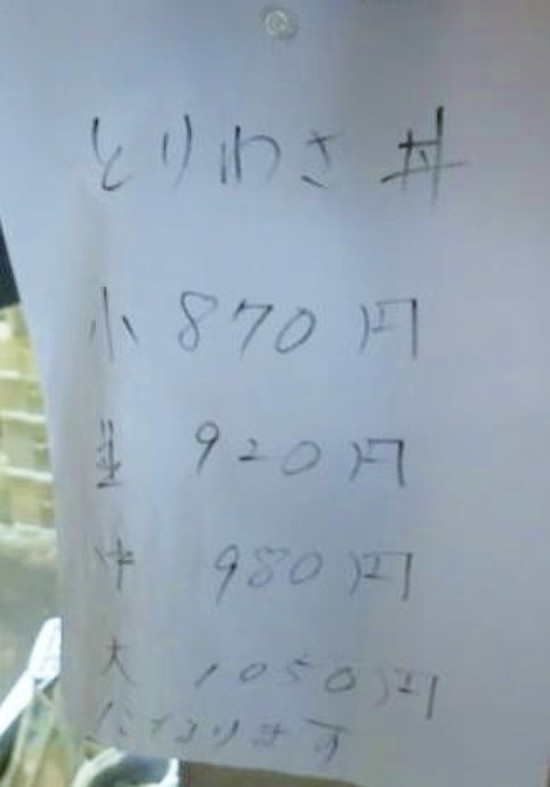 とりわさ丼
小 870円
並 920円
中 980円
大 1050円
になります